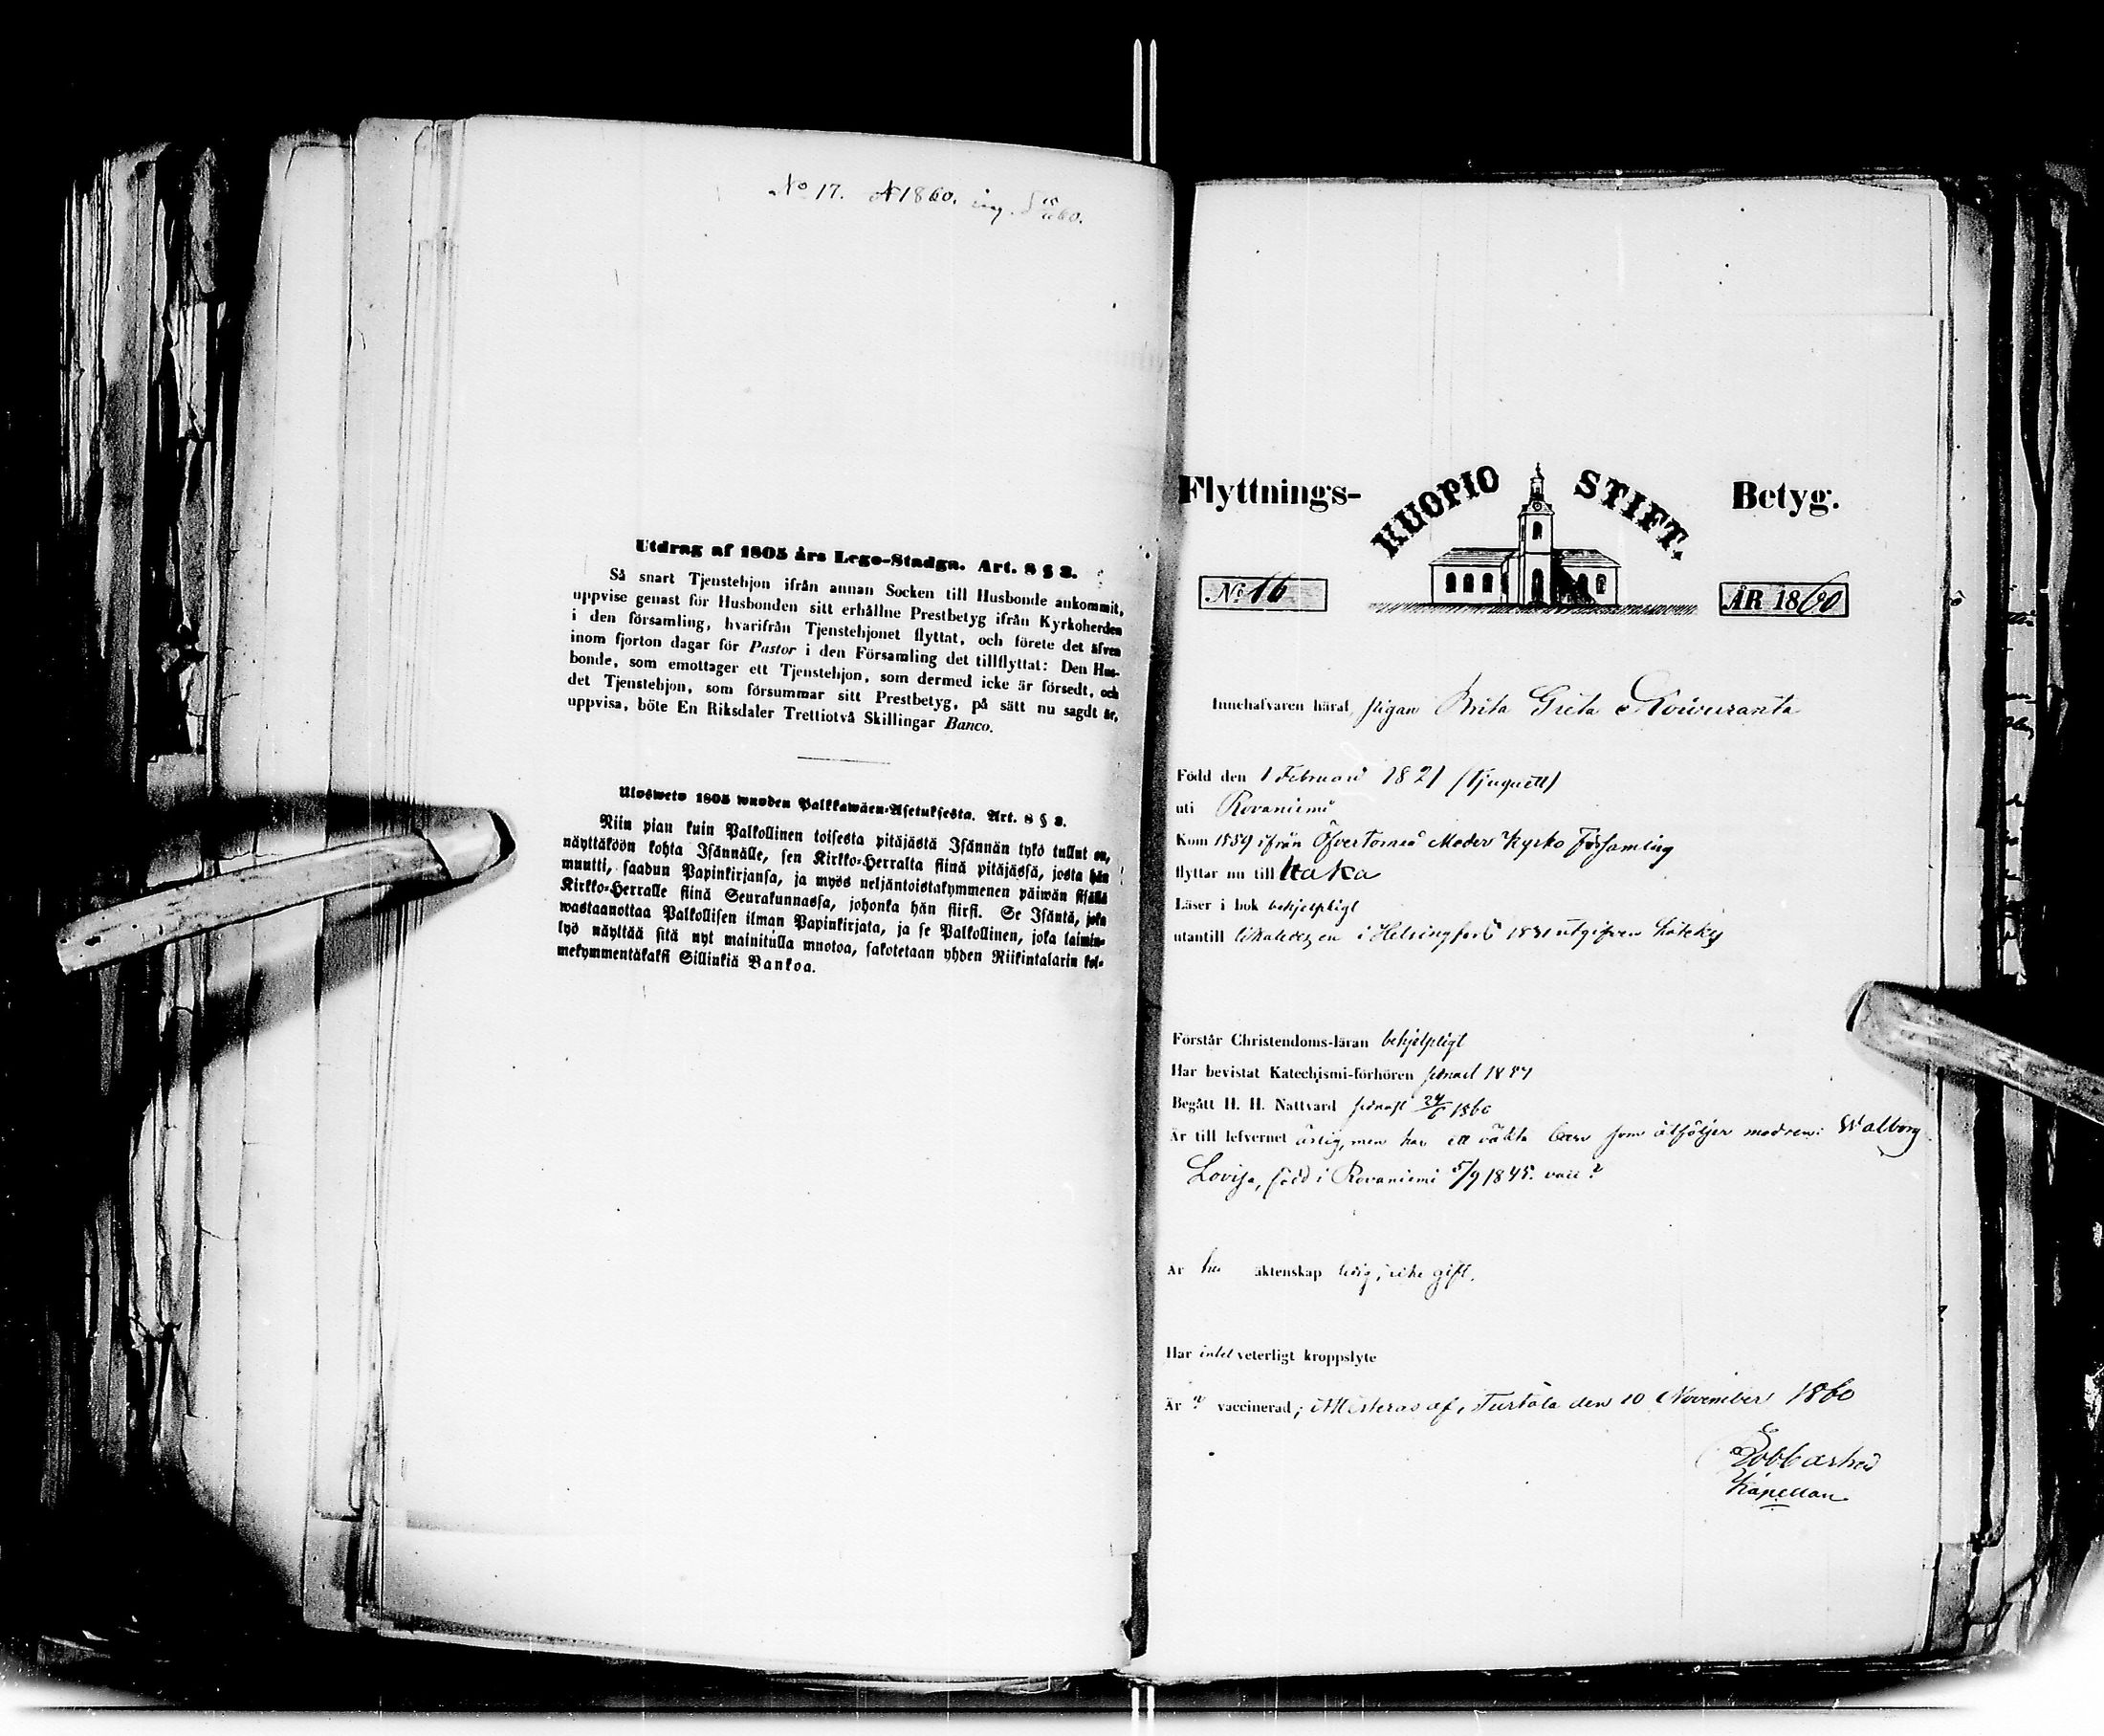 No 17. 1860. ing.
Utdrag af 1805 års Lego-Stadga. Art. 8 § 3.
Så snart Tjenstehjon ifrån annan Socken till Husbonde ankommit,
uppvise genast för Husbonden sitt erhållne Prestbetyg ifrån Kyrkoherden
i den församling, hvarifrån Tjenstehjonet flyttat, och förete det äfven
inom fjorton dagar för Pastor i den Församling det tillflyttat: Den Hus-
bonde, som emottager ett Tjenstehjon, som dermed icke är försedt, och
det Tjenstehjon, som försummar sitt Prestbetyg, på sätt nu sagdt är,
uppvisa, böte En Riksdaler Trettiotvå Skillingar Banco.
Ulosweto 1805 wuoden Palkkawäen-Asetuksesta. Art. 8 § 3.
Niin pian kuin Palkollinen toisesta pitäjästä Isännän tykö tullut on,
näyttäköön kohta Isännälle, sen Kirkko-Herralta siinä pitäjässä, josta hän
muutti, saadun Papinkirjansa, ja myös neljäntoistakymmenen päiwän sisällä
Kirkko-Herralle siinä Seurakunnassa, johonka hän siirsi. Se Isäntä, joka
wastaanottaa Palkollisen ilman Papinkirjata, ja se Palkollinen, joka laimin-
lyö näyttää sitä nyt mainitulla muotoa, sakotetaan yhden Riikintalarin kol-
mekymmentäkaksi Sillinkiä Bankoa.
Flyttnings- KUOPIO STIFT. Betyg.
No 16 ÅR 1860
Innehafvaren häraf, pigan Brita Greta Koivuranta
Född den 1 Februari 1821 (tjuguett)
uti Rovaniemi
Kom 1859 ifrån Öfvertorneå Moder Kyrko Församling
flyttar nu till
Läser i bok behjelpligt
utantill likaledes, en i Helsingfors 1831 utgifven
Förstår Christendoms-läran behjelpligt
Har bevistat Katechismi-förhören sednast
Begått H. H. Nattvard sednast 24/6 1860
Är till lefvernet ärlig, men har ett oäkta barn som åtföljer modren: Walborg
Lovisa, född i Rovaniemi 5/9 1845. vacc ?
Är till äktenskap ledig, icke gift.
Har intet veterligt kroppslyte
Är ? vaccinerad; Attesteras af, Turtola den 10 November 1860
Kapellan